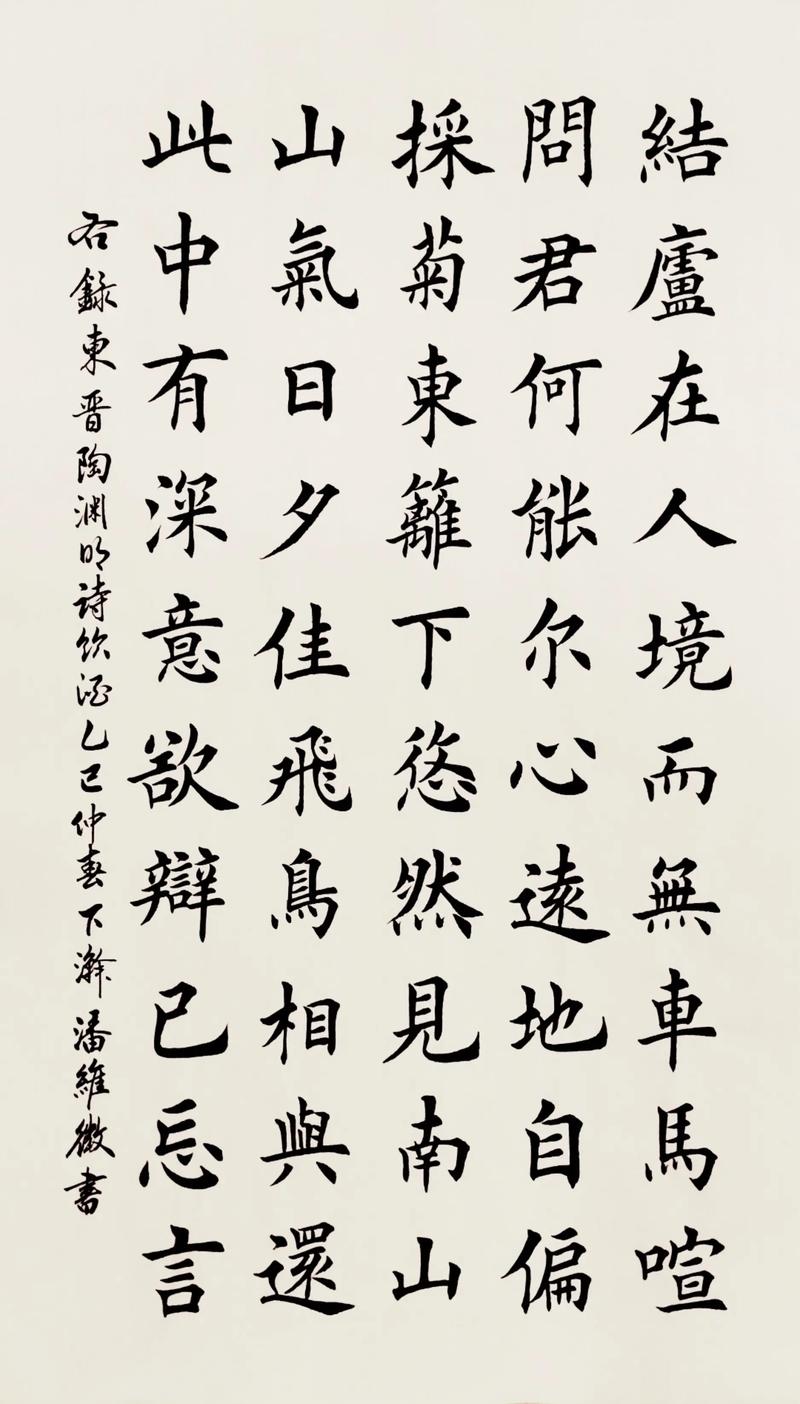 結廬在人境而無車馬喧
問君何能尔心遠地自偏
採菊東籬下悠然見南山
山氣日夕佳飛鳥相與還
此中有深意欲辯已忘言
右録東晋陶渊明詩飲酒乙巳仲春下澣潘維徽書